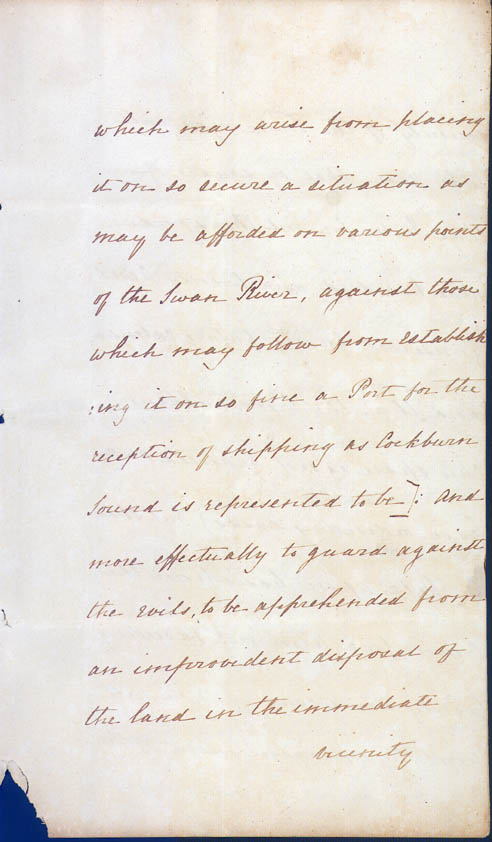 which may arise from placing
it on so secure a situation as
may be afforded on various points
of the Swan River, against those
which may follow from establish
:ing it on so fine a Port for the
reception of shipping as Cockburn
Sound is represented to be]: and
more effectually to guard against
the evils, to be apprehended from
an improvident disposal of
the land in the immediate
vicinity